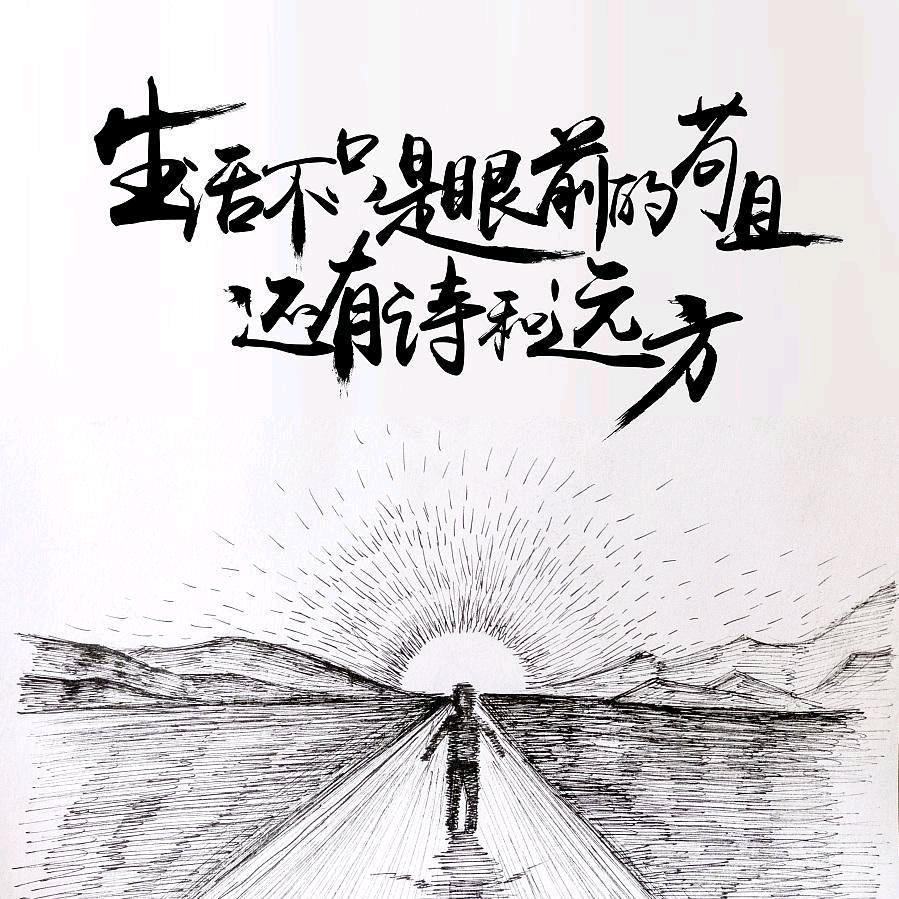 生活不只是眼前的苟且
还有诗和远方